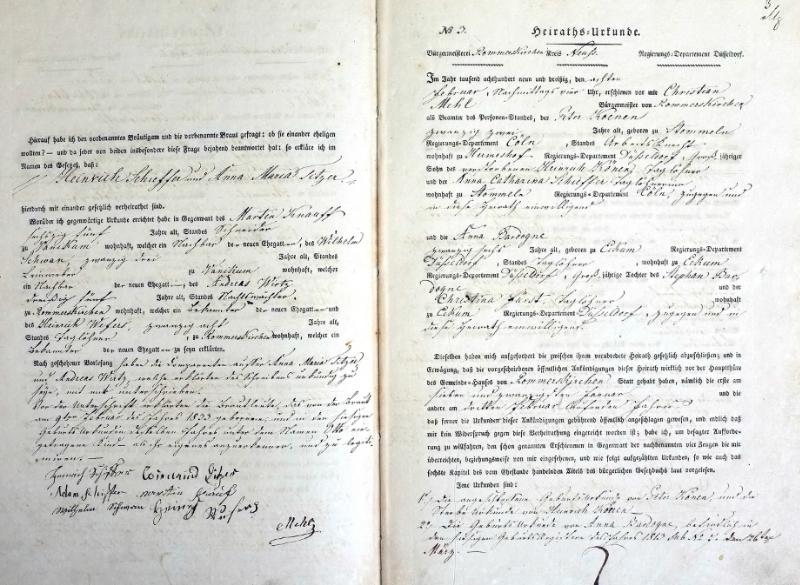 Hierauf habe ich den vorbenannten Bräutigam und die vorbenannte Braut gefragt: ob sie einander ehelichen
wollten? — und da jeder von beiden insbesondere diese Frage bejahend beantwortet hat: so erkläre ich im
Namen des Gesetzes, daß:
Heinrich Schieffer und Anna Maria Sitzer
hierdurch mit einander gesetzlich verheirathet sind.
Worüber ich gegenwärtige Urkunde errichtet habe in Gegenwart des Martin Knauff
fünf Jahre alt, Standes Schneider
zu wohnhaft, welcher ein Nachbar der neuen Ehegatten, des Wilhelm
Schwan, zwanzig drei Jahre alt, Standes
zu wohnhaft, welcher
ein Nachbar der neuen Ehegatten, des Andreas Wirtz
dreißig fünf Jahre alt, Standes Nachtwächter
zu Rommerskirchen wohnhaft, welcher ein Bekannter der neuen Ehegatten und
des Heinrich Wefers, zwanzig acht Jahre alt,
Standes Taglöhner, zu Rommerskirchen wohnhaft, welcher ein
Bekannter der neuen Ehegatten zu seyn erklärten.
Nach geschehener Vorlesung haben die Comparenten außer Anna Maria Sitzer
und Andreas Wirtz, welche erklärten des Schreibens unkundig zu
Vor der Unterschrift erklärten die Brautleute, daß von der Braut
am Februar des Jahres 1833 geborene und in den hiesigen
Geburts Urkunden desselben Jahres unter dem Namen Otto ein-
getragene Kind als ihr eigenes anzuerkennen, und zu legit-
imiren.
Wilhelm Schwan
3
No 3. Heiraths-Urkunde.
Bürgermeisterei Rommerskirchen Kreis Neuß. Regierungs-Departement Düsseldorf.
Im Jahr tausend achthundert neun und dreißig, den achten
Februar, Nachmittags vier Uhr, erschienen vor mir Christian
Mehl Bürgermeister von Rommerskirchen
als Beamten des Personen-Standes, der Peter Koenen
zwanzig zwei Jahre alt, geboren zu Stommeln
Regierungs-Departement Cöln, Standes Arbeitsknecht
wohnhaft zu Regierungs-Departement Düsseldorf, Groß jähriger
Sohn des verstorbenen Heinrich Könen, Taglöhner
und der Anna Catharina Schieffer Taglöhnerin
wohnhaft zu Stommeln Regierungs-Departement Cöln, zugegen und
in diese Heirath einwilligend
und die Anna Bardogne
zwanzig sechs Jahre alt, geboren zu Eckum Regierungs-Departement
Düsseldorf, Standes Taglöhner, wohnhaft zu Eckum
Regierungs-Departement Düsseldorf, Groß jährige Tochter des Stephan Bar-
dogne und der
Christina Fürst, Taglöhner wohnhaft
zu Eckum Regierungs-Departement Düsseldorf, zugegen und in
diese Heirath einwilligend
Dieselben haben mich aufgefordert die zwischen ihnen verabredete Heirath gesetzlich abzuschließen; und in
Erwägung, daß die vorgeschriebenen öffentlichen Ankündigungen dieser Heirath wirklich vor der Hauptthüre
des Gemeinde-Hauses von Rommerskirchen Statt gehabt haben, nämlich die erste am
sieben und zwanzigsten Januar und die
andere am dritten Februar laufenden Jahres
daß ferner die Urkunden dieser Ankündigungen gebührend öffentlich angeschlagen gewesen, und endlich daß
mir kein Widerspruch gegen diese Verheirathung eingereicht worden ist; habe ich, um besagter Aufforde-
rung zu willfahren, den schon genannten Erschienenen in Gegenwart der nachbenannten vier Zeugen die mir
überreichten, beziehungsweise von mir eingesehenen, und wie folgt aufgezählten Urkunden, so wie auch das
sechste Kapitel des vom Ehestande handelnden Titels des bürgerlichen Gesetzbuchs laut vorgelesen.
Jene Urkunden sind:
1o. Die Geburts Urkunde von Peter Könen, und die
Sterbe Urkunde von Heinrich Könen.
2o. Die Geburts Urkunde von Anna Bardogne, befindlich in
den hiesigen Geburts Registern des Jahres 1813 sub No den 26ten
März.